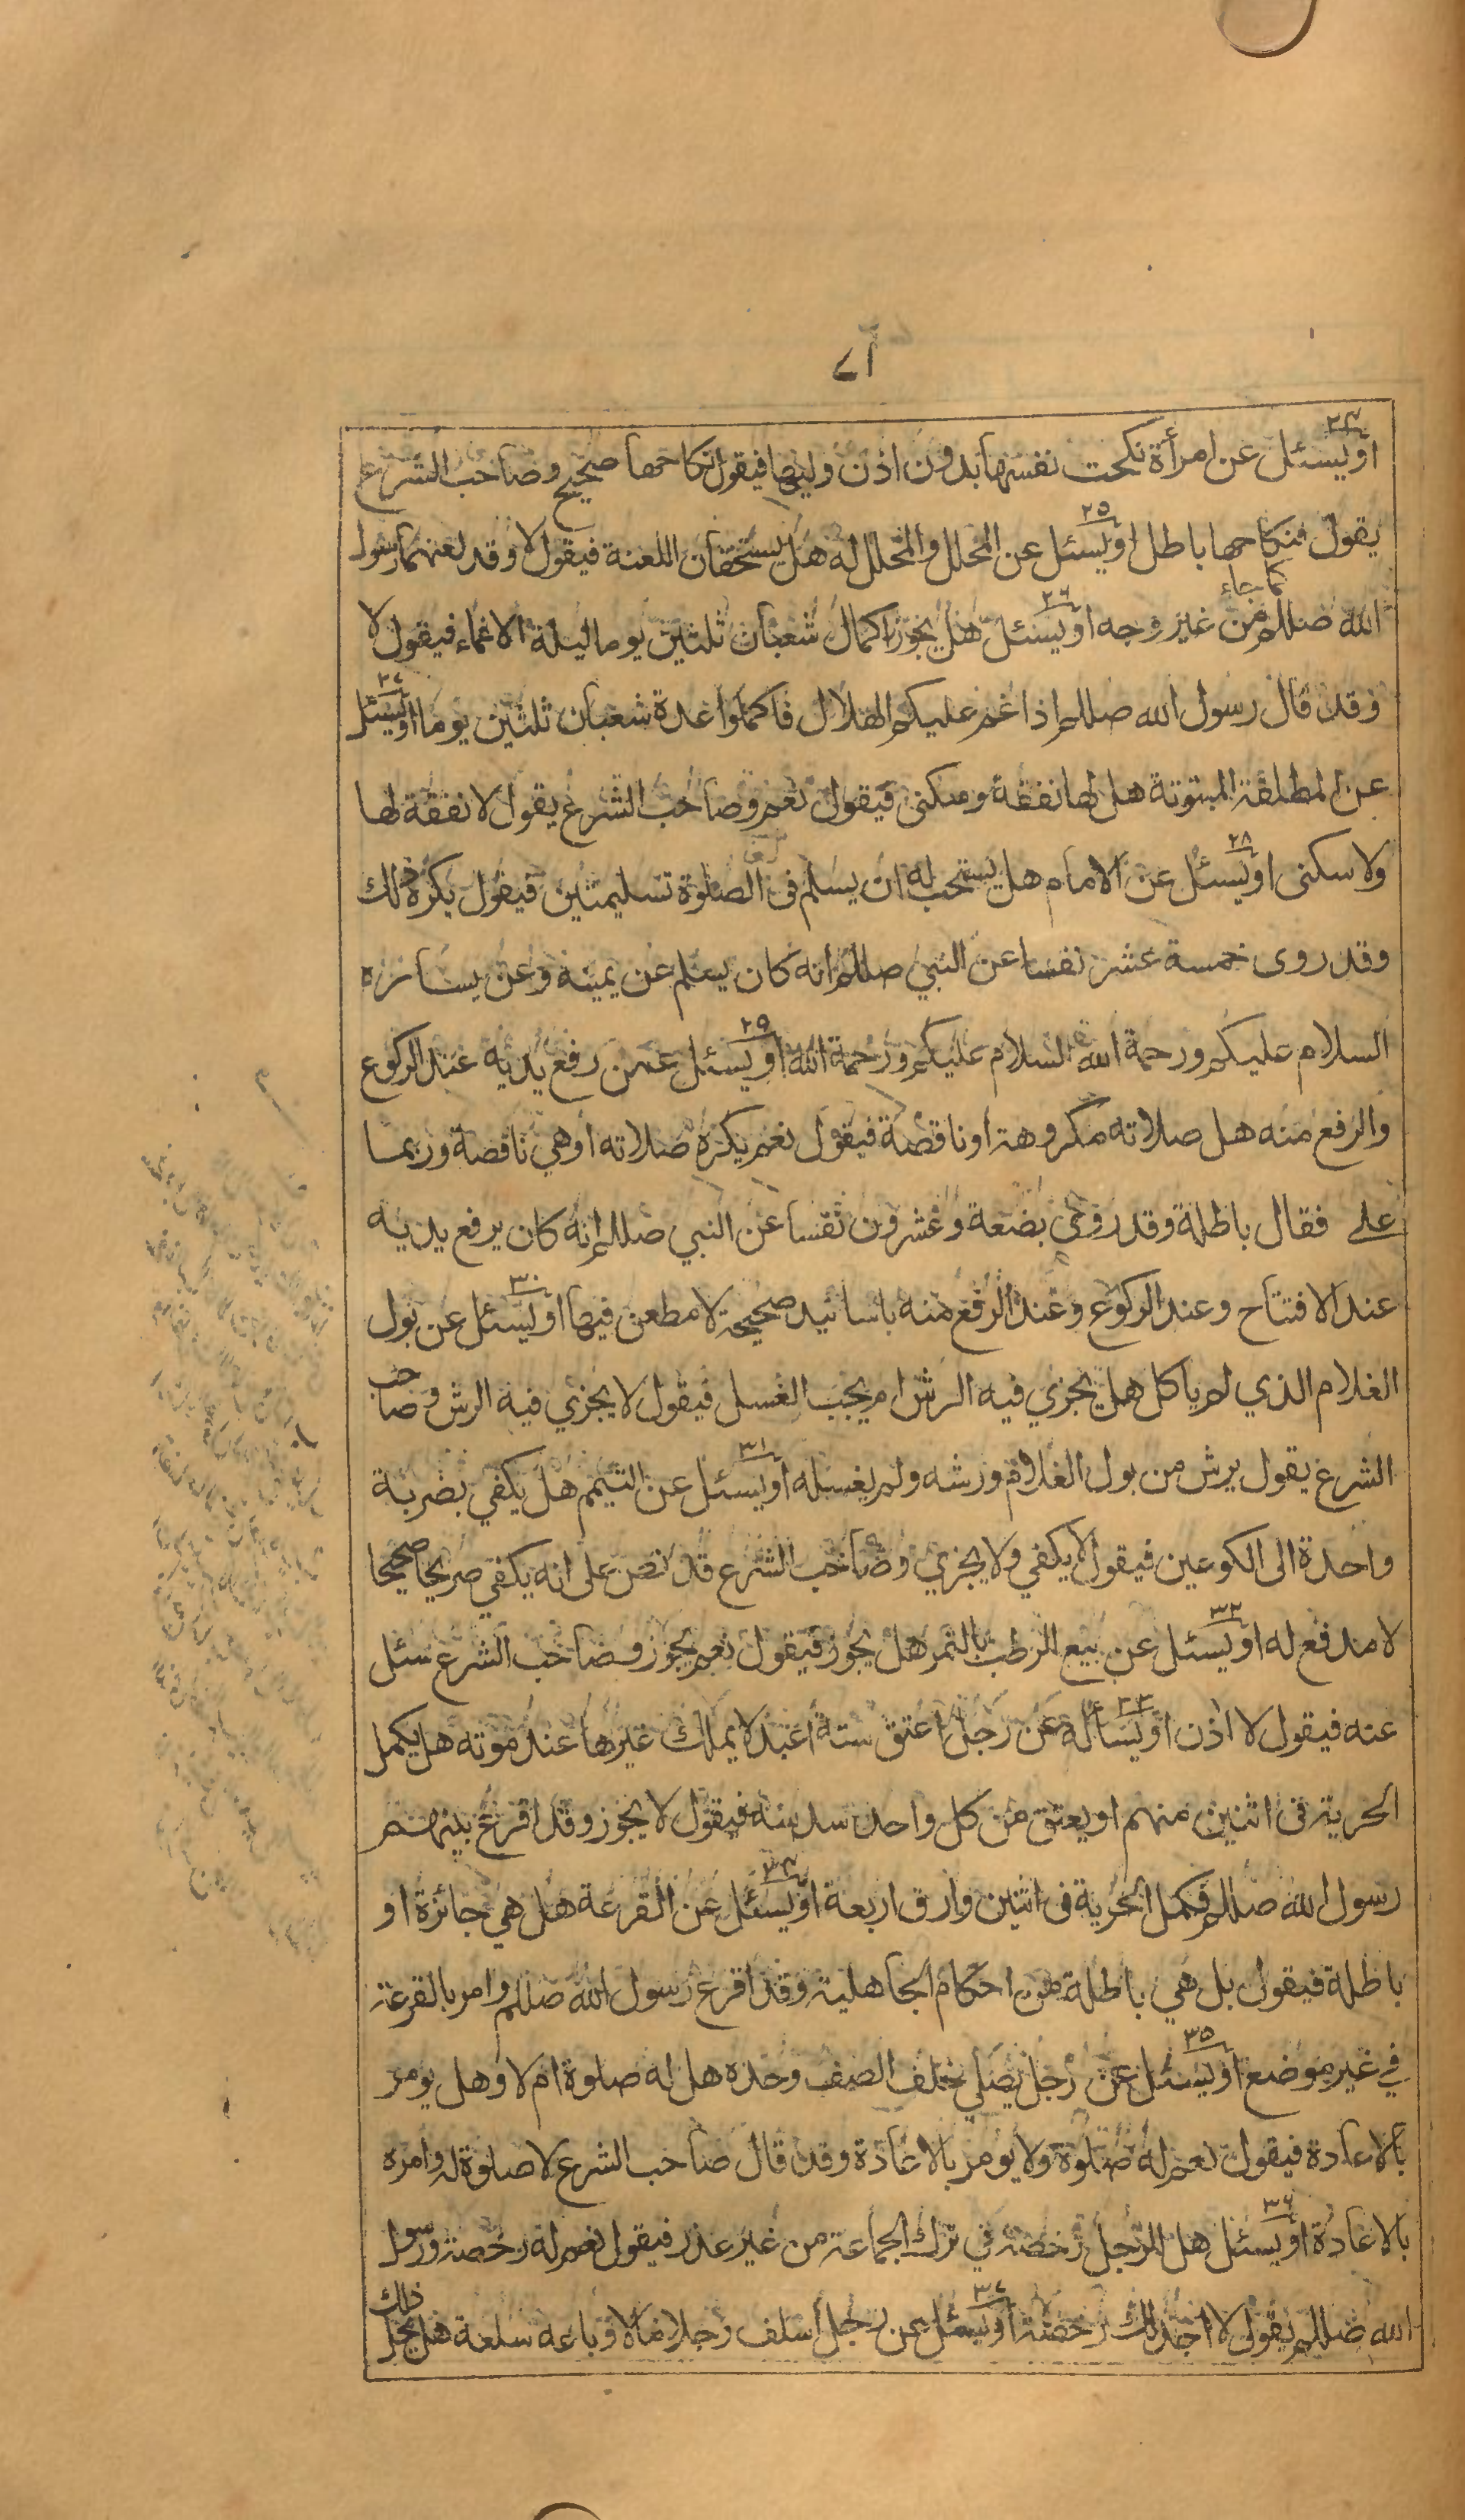 ٧٦
٢٤
او يسئل عن امرأة نكحت نفسها بدون اذن وليها فيقول نكاحها صحيح وصاحب الشرع
٢٥
يقول فنكاحها باطل او يسئل عن المحلل والمحلل له هل يستحقان اللعنة فيقول لا وقد لعنهما رسول
كما جاء
٢٦
الله صللم من غير وجه او يسئل هل يجوز اكمال شعبان ثلثين يوما ليلة الاغماء فيقول لا
٢٧
وقد قال رسول الله صللم اذا غم عليكم الهلال فاكملوا عدة شعبان ثلثين يوما او يسئل
عن المطلقة المبتوتة هل لها نفقة وسكنى فيقول نعم وصاحب الشرع يقول لا نفقة لها
٢٨
ولا سكنى او يسئل عن الامام هل يستحب له ان يسلم في الصلوة تسليمتين فيقول يكره ذلك
وقد روى خمسة عشر نفسا عن النبي صللم انه كان يسلم عن يمينه وعن يساره
٢٩
السلام عليكم ورحمة الله السلام عليكم ورحمة الله او يسئل عمن رفع يديه عند الركوع
والرفع منه هل صلاته مكروهة او ناقصة فيقول نعم يكره صلاته او هي ناقصة وربما
على فقال باطلة وقد روى بضعة وعشرون نفسا عن النبي صللم انه كان يرفع يديه
٣٠
عند الافتتاح وعند الركوع وعند الرفع منه باسانيد صحيحة لا مطعن فيها او يسئل عن بول
الغلام الذي لم ياكل هل يجزي فيه الرش ام يجب الغسل فيقول لا يجزي فيه الرش وصاحب
٣١
الشرع يقول يرش من بول الغلام ورشه ولم يغسله او يسئل عن التيمم هل يكفي بضربة
واحدة الى الكوعين فيقول لا يكفي ولا يجزي وصاحب الشرع قد نص على انه يكفي صريحا صحيحا
٣٢
لا مدفع له او يسئل عن بيع الرطب بالتمر هل يجوز فيقول نعم يجوز وصاحب الشرع سئل
٣٣
عنه فيقول لا اذن او يسأله عن رجل اعتق ستة اعبد لا يملك غيرها عند موته هل يكمل
الحرية في اثنين منهم او يعتق من كل واحد سدسه فيقول لا يجوز وقد اقرع بينهم
٣٤
رسول الله صللم فكمل الحرية في اثنين وارق اربعة او يسئل عن القرعة هل هي جائزة او
باطلة فيقول بل هي باطلة من احكام الجاهلية وقد اقرع رسول الله صللم وامر بالقرعة
٣٥
في غير موضع او يسئل عن رجل يصلي خلف الصف وحده هل له صلوة ام لا وهل يومر
بالاعادة فيقول نعم له صلوة ولا يومر بالاعادة وقد قال صاحب الشرع لا صلوة له وامره
٣٦
بالاعادة او يسئل هل للرجل رخصة في ترك الجماعة من غير عذر فيقول نعم له رخصة ورسول
٣٧
الله صللم يقول لا اجد لك رخصة او يسئل عن رجل اسلف رجلا مالا وباعه سلعة هل يحل ذلك